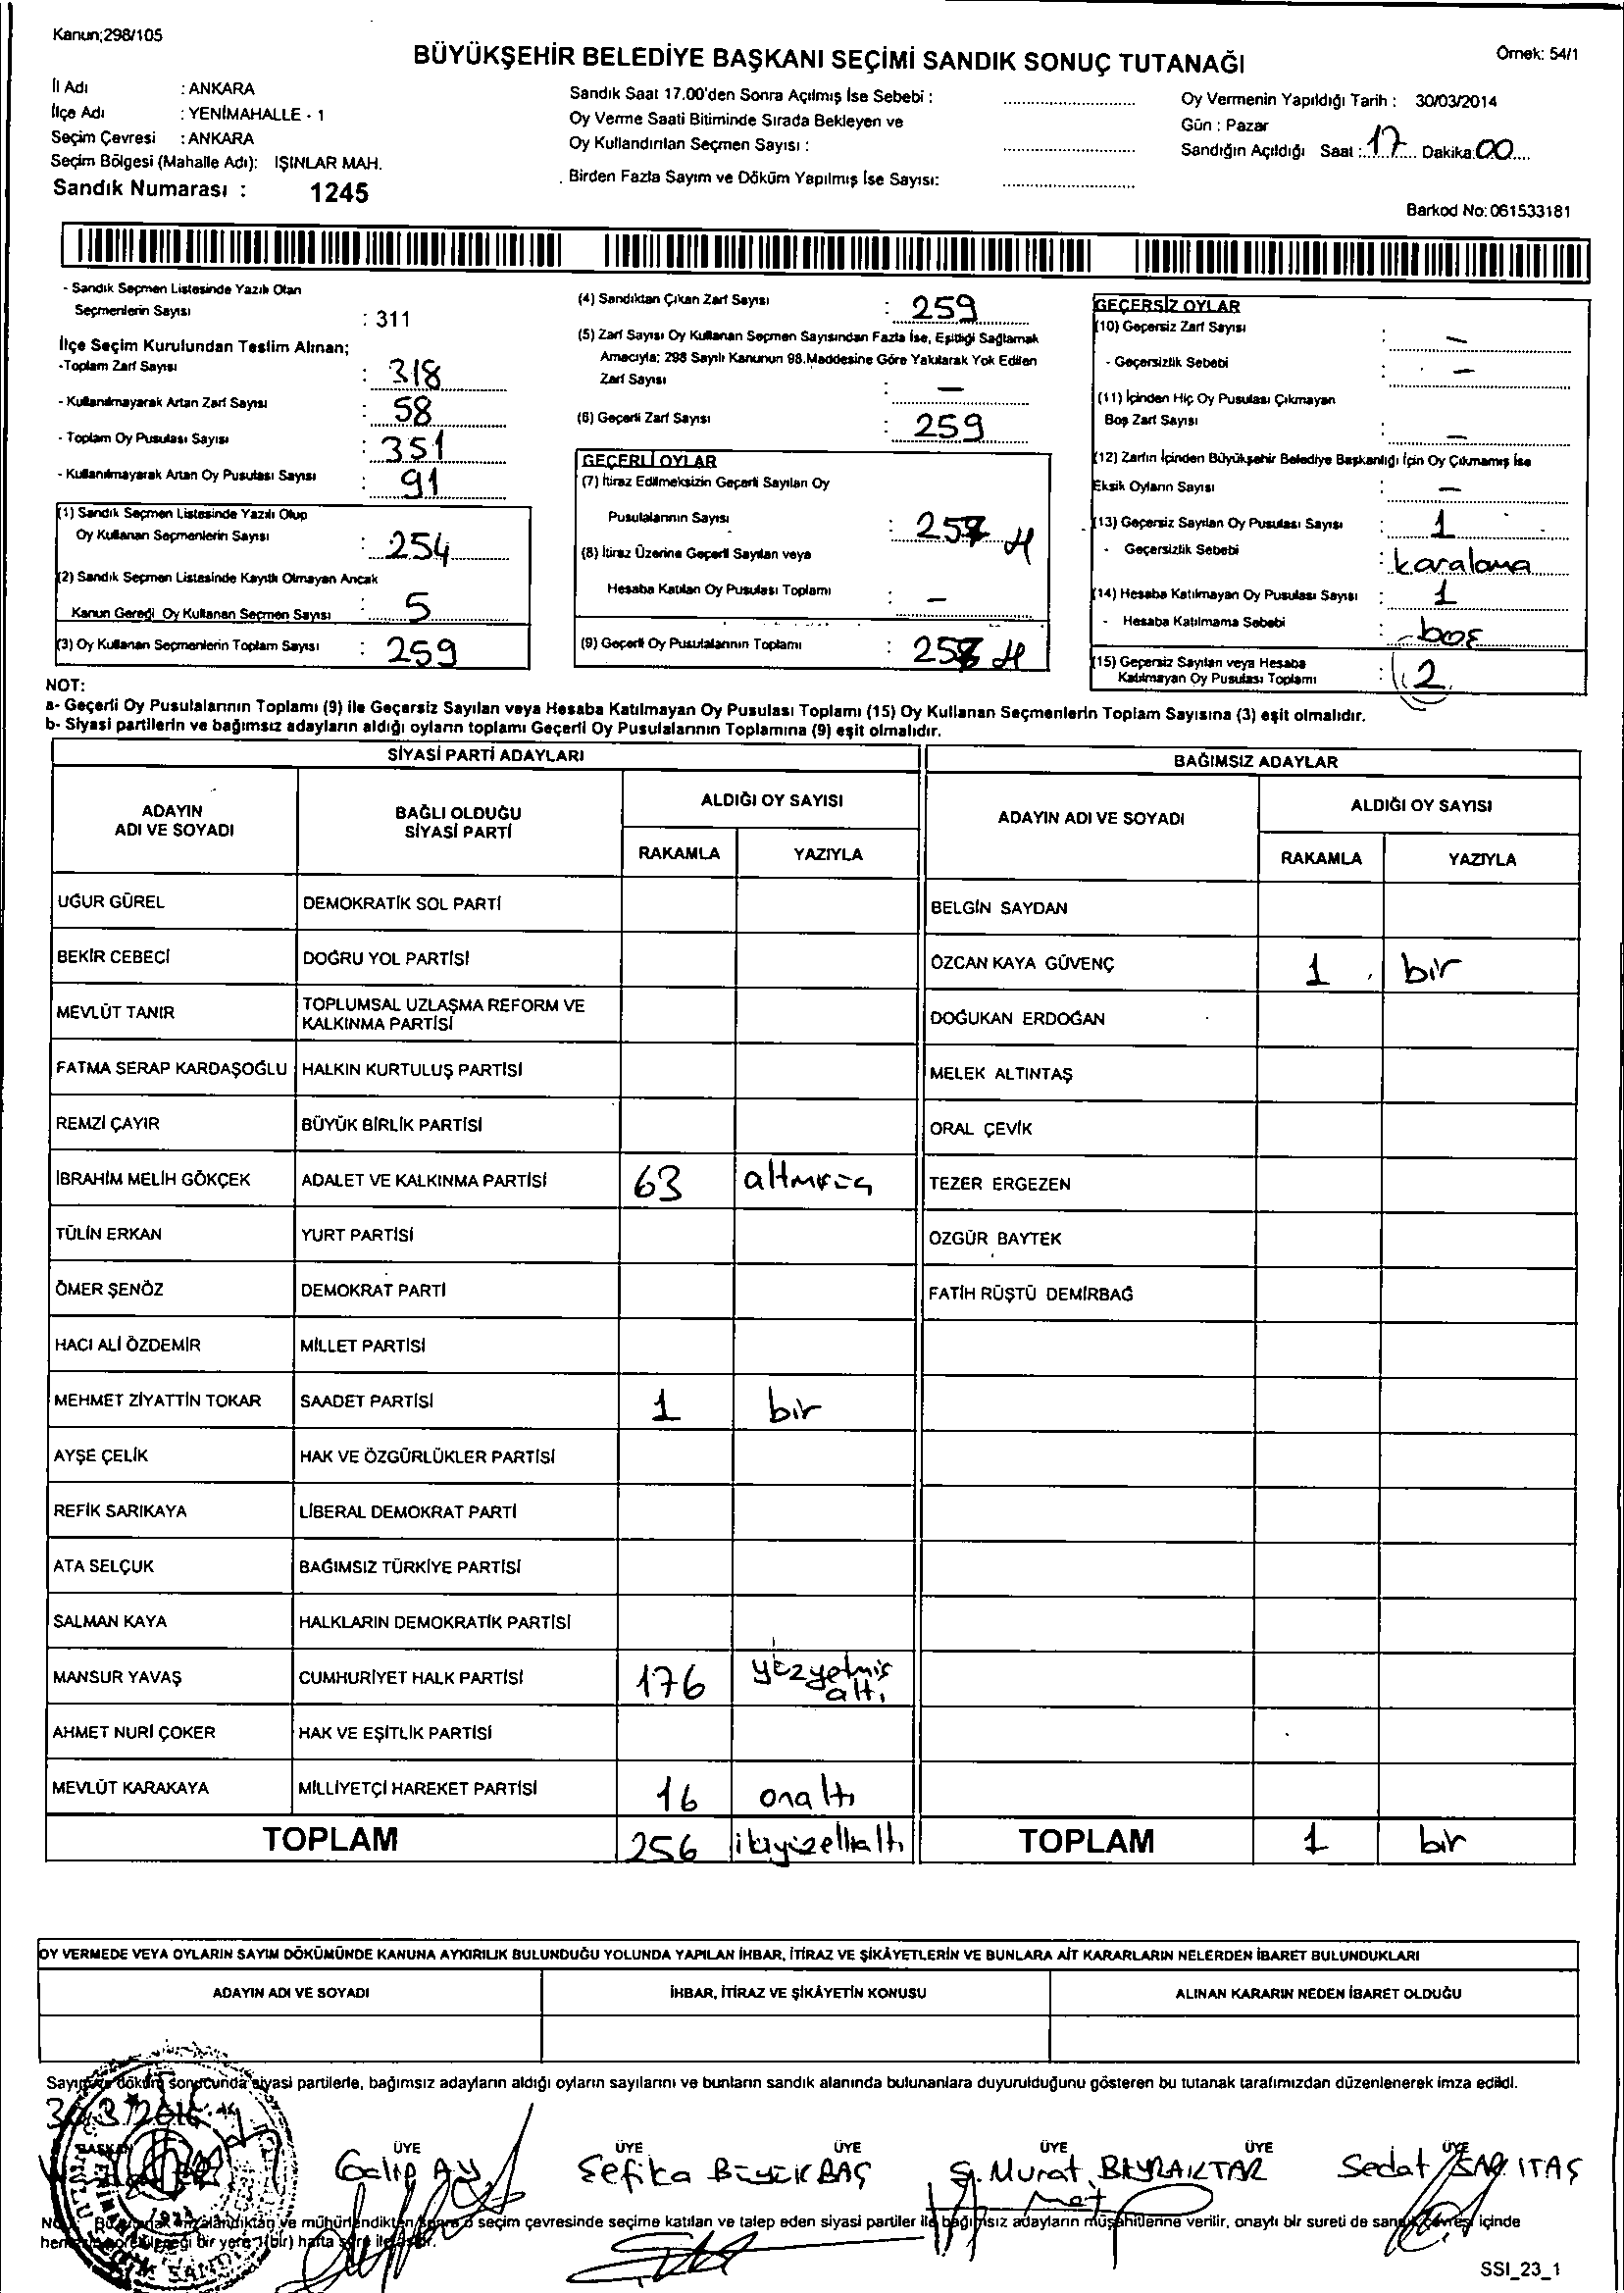 Kanun;298/105
BÜYÜKŞEHİR BELEDİYE BAŞKANI SEÇİMİ SANDIK SONUÇ TUTANAĞI
Örnek: 54/1
İl Adı : ANKARA
İlçe Adı : YENİMAHALLE - 1
Seçim Çevresi : ANKARA
Seçim Bölgesi (Mahalle Adı): IŞINLAR MAH.
Sandık Numarası : 1245
Sandık Saat 17.00'den Sonra Açılmış İse Sebebi :
Oy Verme Saati Bitiminde Sırada Bekleyen ve
Oy Kullandırılan Seçmen Sayısı :
Birden Fazla Sayım ve Döküm Yapılmış İse Sayısı:
Oy Vermenin Yapıldığı Tarih : 30/03/2014
Gün : Pazar
Sandığın Açıldığı Saat : 17 Dakika: 00
Barkod No: 061533181
- Sandık Seçmen Listesinde Yazılı Olan
Seçmenlerin Sayısı : 311
İlçe Seçim Kurulundan Teslim Alınan;
-Toplam Zarf Sayısı : 318
- Kullanılmayarak Artan Zarf Sayısı : 58
- Toplam Oy Pusulası Sayısı : 351
- Kullanılmayarak Artan Oy Pusulası Sayısı : 91
(1) Sandık Seçmen Listesinde Yazılı Olup
Oy Kullanan Seçmenlerin Sayısı : 254
(2) Sandık Seçmen Listesinde Kayıtlı Olmayan Ancak
Kanun Gereği Oy Kullanan Seçmen Sayısı : 5
(3) Oy Kullanan Seçmenlerin Toplam Sayısı : 259
(4) Sandıktan Çıkan Zarf Sayısı : 259
(5) Zarf Sayısı Oy Kullanan Seçmen Sayısından Fazla İse, Eşitliği Sağlamak
Amacıyla; 298 Sayılı Kanunun 98.Maddesine Göre Yakılarak Yok Edilen
Zarf Sayısı : —
(6) Geçerli Zarf Sayısı : 259
GEÇERLİ OYLAR
(7) İtiraz Edilmeksizin Geçerli Sayılan Oy
Pusulalarının Sayısı : 257
(8) İtiraz Üzerine Geçerli Sayılan veya
Hesaba Katılan Oy Pusulası Toplamı : —
(9) Geçerli Oy Pusulalarının Toplamı : 257
GEÇERSİZ OYLAR
(10) Geçersiz Zarf Sayısı : —
- Geçersizlik Sebebi : —
(11) İçinden Hiç Oy Pusulası Çıkmayan
Boş Zarf Sayısı : —
(12) Zarfın İçinden Büyükşehir Belediye Başkanlığı İçin Oy Çıkmamış İse
Eksik Oyların Sayısı : —
(13) Geçersiz Sayılan Oy Pusulası Sayısı : 1
- Geçersizlik Sebebi : karalama
(14) Hesaba Katılmayan Oy Pusulası Sayısı : 1
- Hesaba Katılmama Sebebi : boş
(15) Geçersiz Sayılan veya Hesaba
Katılmayan Oy Pusulası Toplamı : 2
NOT:
a- Geçerli Oy Pusulalarının Toplamı (9) ile Geçersiz Sayılan veya Hesaba Katılmayan Oy Pusulası Toplamı (15) Oy Kullanan Seçmenlerin Toplam Sayısına (3) eşit olmalıdır.
b- Siyasi partilerin ve bağımsız adayların aldığı oyların toplamı Geçerli Oy Pusulalarının Toplamına (9) eşit olmalıdır.
SİYASİ PARTİ ADAYLARI
ADAYIN ADI VE SOYADI
BAĞLI OLDUĞU SİYASİ PARTİ
ALDIĞI OY SAYISI
RAKAMLA YAZIYLA
UĞUR GÜREL DEMOKRATİK SOL PARTİ
BEKİR CEBECİ DOĞRU YOL PARTİSİ
MEVLÜT TANIR TOPLUMSAL UZLAŞMA REFORM VE
KALKINMA PARTİSİ
FATMA SERAP KARDAŞOĞLU HALKIN KURTULUŞ PARTİSİ
REMZİ ÇAYIR BÜYÜK BİRLİK PARTİSİ
İBRAHİM MELİH GÖKÇEK ADALET VE KALKINMA PARTİSİ 63 altmışüç
TÜLİN ERKAN YURT PARTİSİ
ÖMER ŞENÖZ DEMOKRAT PARTİ
HACI ALİ ÖZDEMİR MİLLET PARTİSİ
MEHMET ZİYATTİN TOKAR SAADET PARTİSİ 1 bir
AYŞE ÇELİK HAK VE ÖZGÜRLÜKLER PARTİSİ
REFİK SARIKAYA LİBERAL DEMOKRAT PARTİ
ATA SELÇUK BAĞIMSIZ TÜRKİYE PARTİSİ
SALMAN KAYA HALKLARIN DEMOKRATİK PARTİSİ
MANSUR YAVAŞ CUMHURİYET HALK PARTİSİ 176 yüzyetmiş
altı
AHMET NURİ ÇOKER HAK VE EŞİTLİK PARTİSİ
MEVLÜT KARAKAYA MİLLİYETÇİ HAREKET PARTİSİ 16 onaltı
TOPLAM 256 ikiyüzellialtı
BAĞIMSIZ ADAYLAR
ADAYIN ADI VE SOYADI
ALDIĞI OY SAYISI
RAKAMLA YAZIYLA
BELGİN SAYDAN
ÖZCAN KAYA GÜVENÇ 1 bir
DOĞUKAN ERDOĞAN
MELEK ALTINTAŞ
ORAL ÇEVİK
TEZER ERGEZEN
ÖZGÜR BAYTEK
FATİH RÜŞTÜ DEMİRBAĞ
TOPLAM 1 bir
OY VERMEDE VEYA OYLARIN SAYIM DÖKÜMÜNDE KANUNA AYKIRILIK BULUNDUĞU YOLUNDA YAPILAN İHBAR, İTİRAZ VE ŞİKÂYETLERİN VE BUNLARA AİT KARARLARIN NELERDEN İBARET BULUNDUKLARI
ADAYIN ADI VE SOYADI İHBAR, İTİRAZ VE ŞİKÂYETİN KONUSU ALINAN KARARIN NEDEN İBARET OLDUĞU
döküm sonucunda siyasi partilerle, bağımsız adayların aldığı oyların sayılarını ve bunların sandık alanında bulunanlara duyurulduğunu gösteren bu tutanak tarafımızdan düzenlenerek imza edildi.
BAŞKAN ÜYE ÜYE ÜYE ÜYE ÜYE ÜYE
Galip AY Şefika BÜYÜKBAŞ Ş. Murat BAYRAKTAR Sedat
imzalandıktan ve mühürlendikten sonra o seçim çevresinde seçime katılan ve talep eden siyasi partiler ile bağımsız adayların müşahitlerine verilir, onaylı bir sureti de sandık çevresi içinde
bir yere 1(bir) hafta süre ile asılır.
SSI_23_1